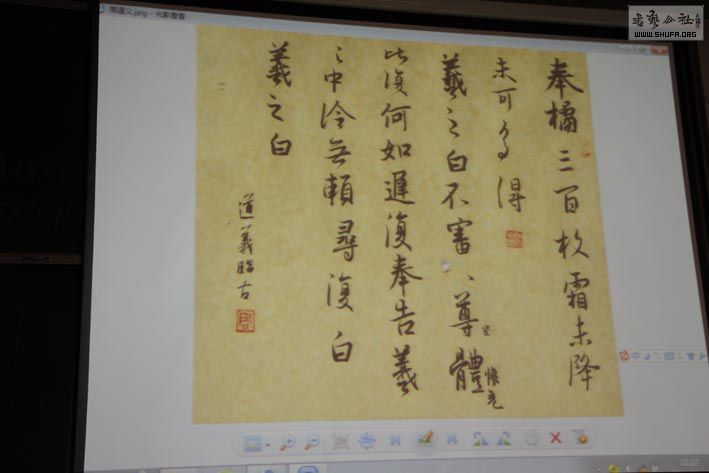 周道义.jpg - 光影看看
書藝公社
WWW.SHUFA.ORG
奉橘三百枚霜未降
未可多得
羲之白不審、尊體
懷充
比復何如遲復奉告羲
之中冷無賴尋復白
羲之白
道義臨古